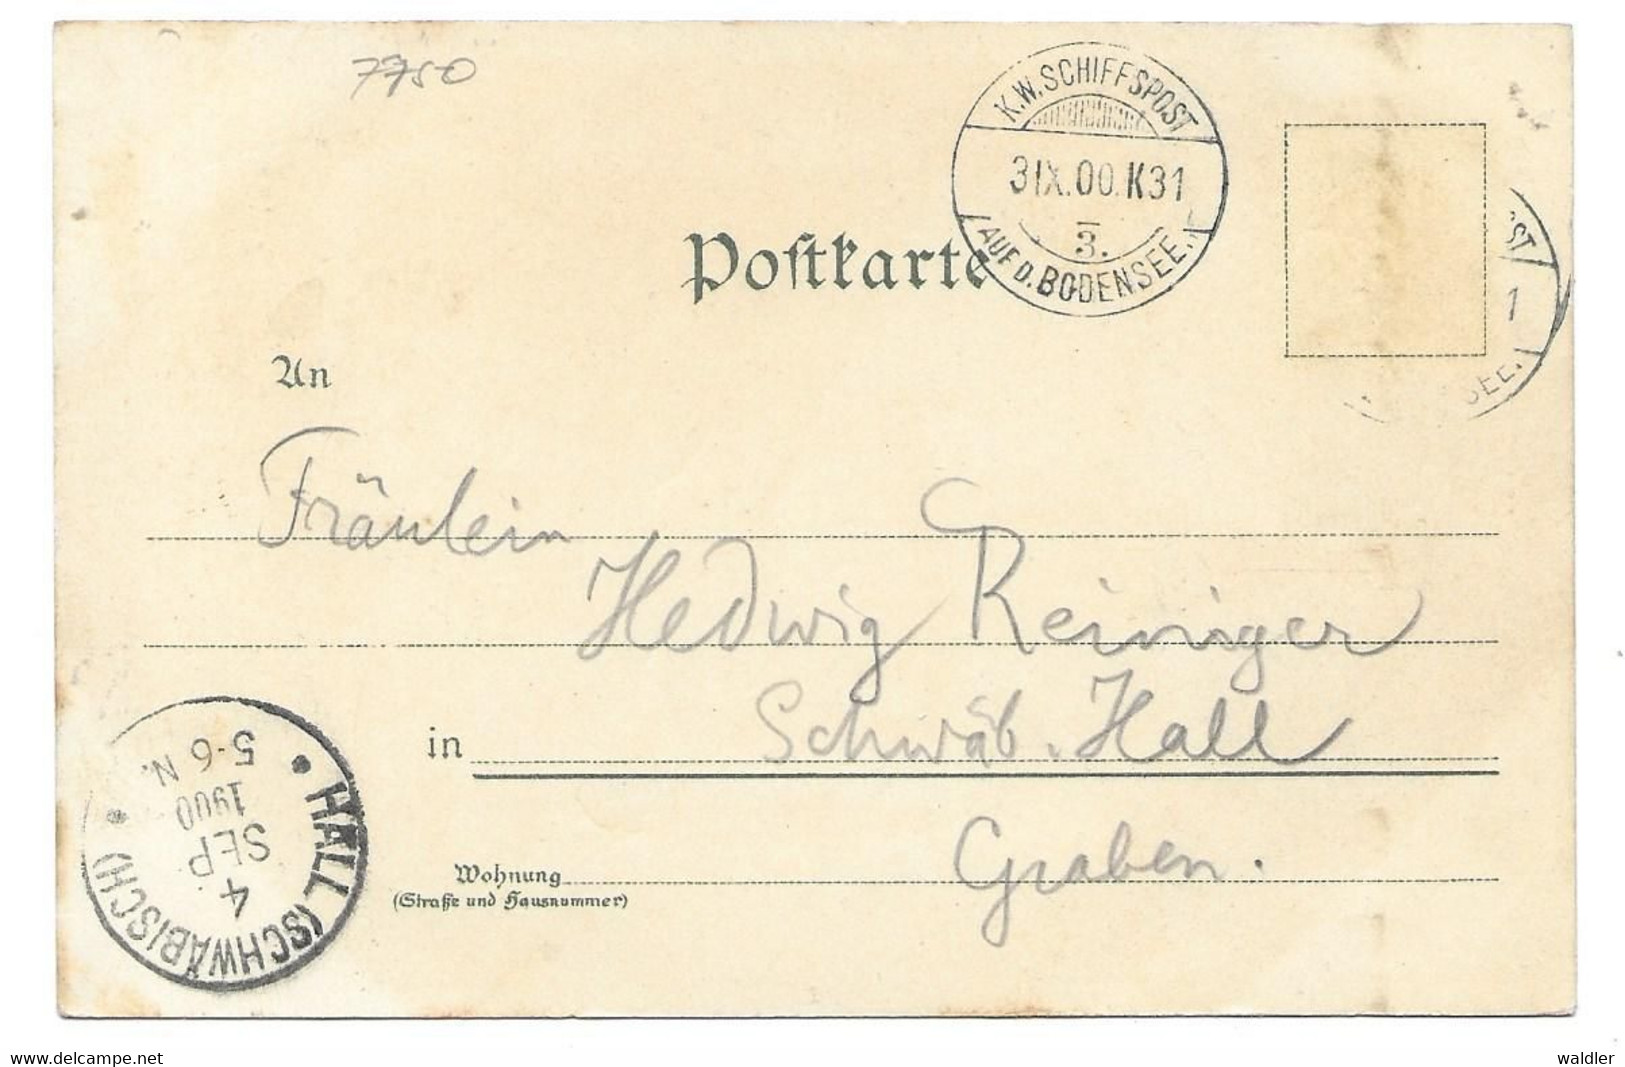 7750
K.W. SCHIFFSPOST
3 IX.00.K31
3.
AUF D. BODENSEE.
ST
1
SEE.
Postkarte
An
Fräulein
Hedwig Reiniger
in Schwäb. Hall
Wohnung Graben.
(Straße und Hausnummer)
HALL (SCHWÄBISCH)
4
SEP.
1900
5-6 N.
www.delcampe.net
waldler